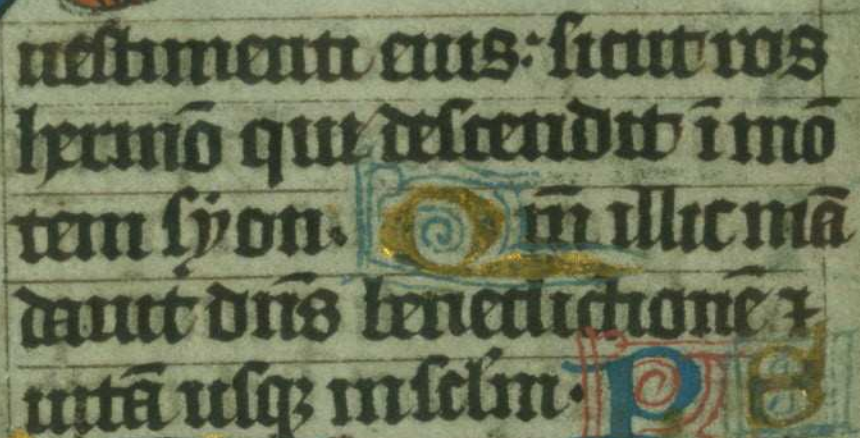 uestimenti eius: sicut ros
hermō qui descendit ī mō
tem syon. Qm̄ illic mā
dauit dn̄s benedictionē ⁊
uitā usqꝫ in sclm. P S